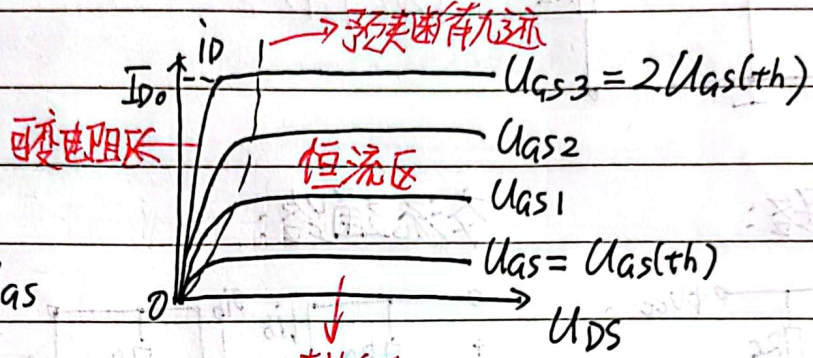 iD
→预夹断轨迹
IDO
UGS3=2UGS(th)
可变电阻区
UGS2
恒流区
UGS1
UGS=UGS(th)
GS
O
UDS